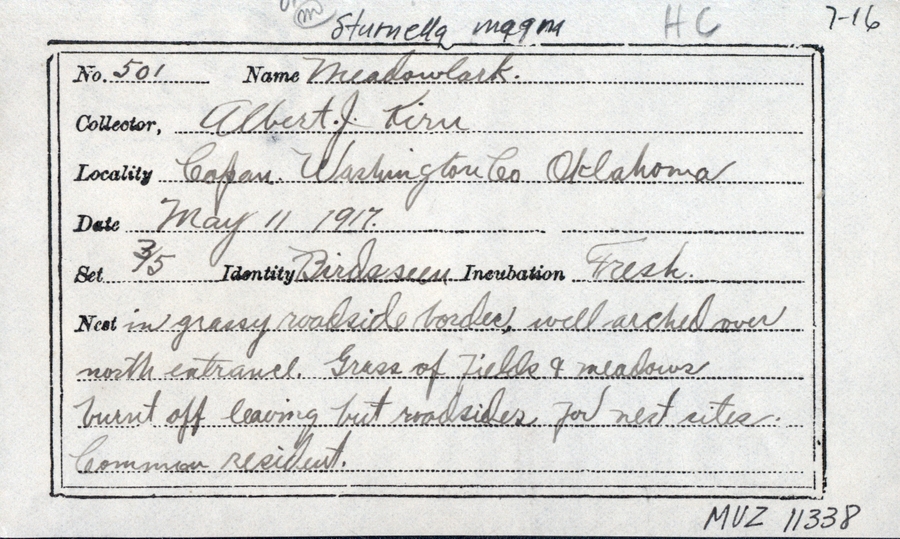 Sturnella magna HC 7-16
No. 501 Name Meadowlark.
Collector, Albert J. Kirn
Locality Copan. Washington Co Oklahoma
Date May 11 1917.
Set 3/5 Identity Birds seen Incubation Fresh.
Nest in grassy roadside border, well arched over
north entrance. Grass of fields & meadows
burnt off leaving but roadsides for nest sites.
Common resident.
MVZ 11338